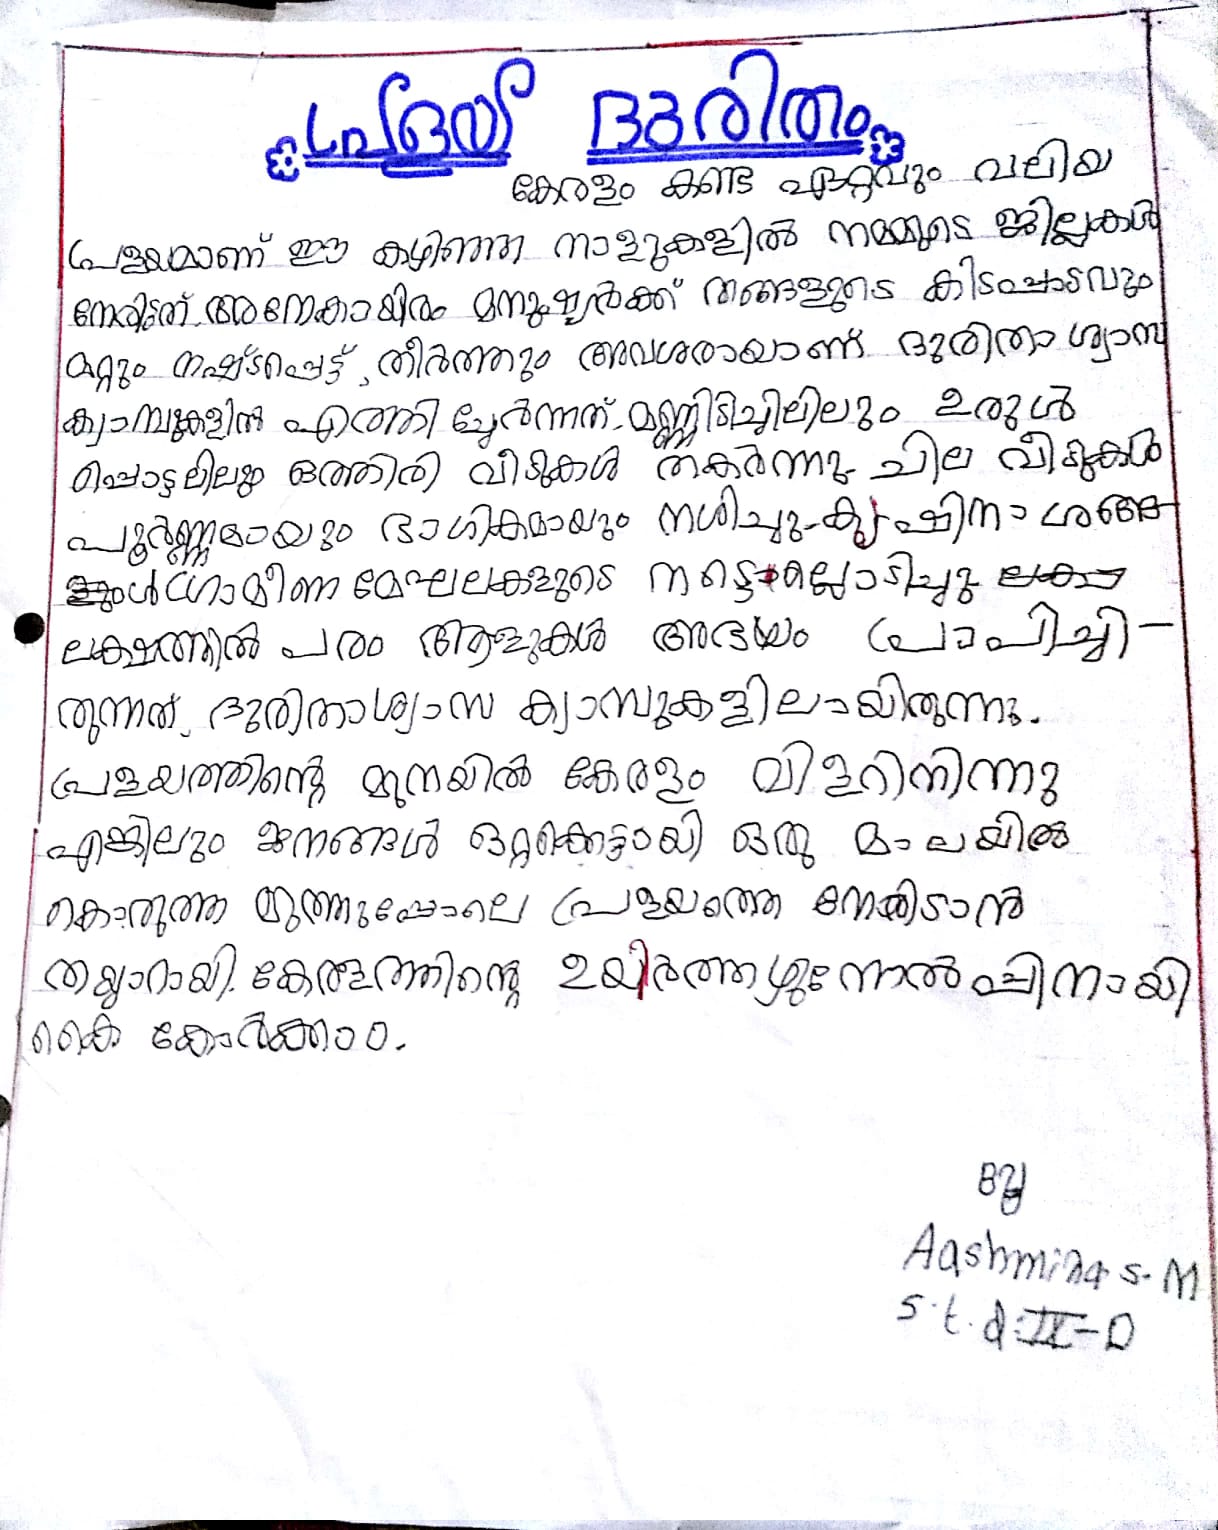 പ്രളയ ദുരിതം
കേരളം കണ്ട ഏറ്റവും വലിയ
പ്രളയമാണ് ഈ കഴിഞ്ഞ നാളുകളിൽ നമ്മുടെ ജില്ലകൾ
നേരിട്ടത്. അനേകായിരം മനുഷ്യർക്ക് തങ്ങളുടെ കിടപ്പാടവും
മറ്റും നഷ്ടപ്പെട്ട്, തീർത്തും അവശരായാണ് ദുരിതാശ്വാസ
ക്യാമ്പുകളിൽ എത്തി ച്ചേർന്നത്. മണ്ണിടിച്ചിലിലും ഉരുൾ
പ്പൊട്ടലിലും ഒത്തിരി വീടുകൾ തകർന്നു. ചില വീടുകൾ
പൂർണ്ണമായും ഭാഗികമായും നശിച്ചു. കൃഷിനാശങ്ങ
ൾ ഗ്രാമീണ മേഖലകളുടെ നട്ടെല്ലൊടിച്ചു
ലക്ഷത്തിൽ പരം ആളുകൾ അഭയം പ്രാപിച്ചി-
രുന്നത്, ദുരിതാശ്വാസ ക്യാമ്പുകളിലായിരുന്നു.
പ്രളയത്തിന്റെ മുനയിൽ കേരളം വിളറിനിന്നു
എങ്കിലും ജനങ്ങൾ ഒറ്റക്കെട്ടായി ഒരു മാലയിൽ
കൊരുത്ത മുത്തുപ്പോലെ പ്രളയത്തെ നേരിടാൻ
തയ്യാറായി. കേരളത്തിന്റെ ഉയിർത്തഴുന്നേൽപ്പിനായി
കൈ കോർക്കാം.
By
Aashmina S. M
s.t.d: IX-D